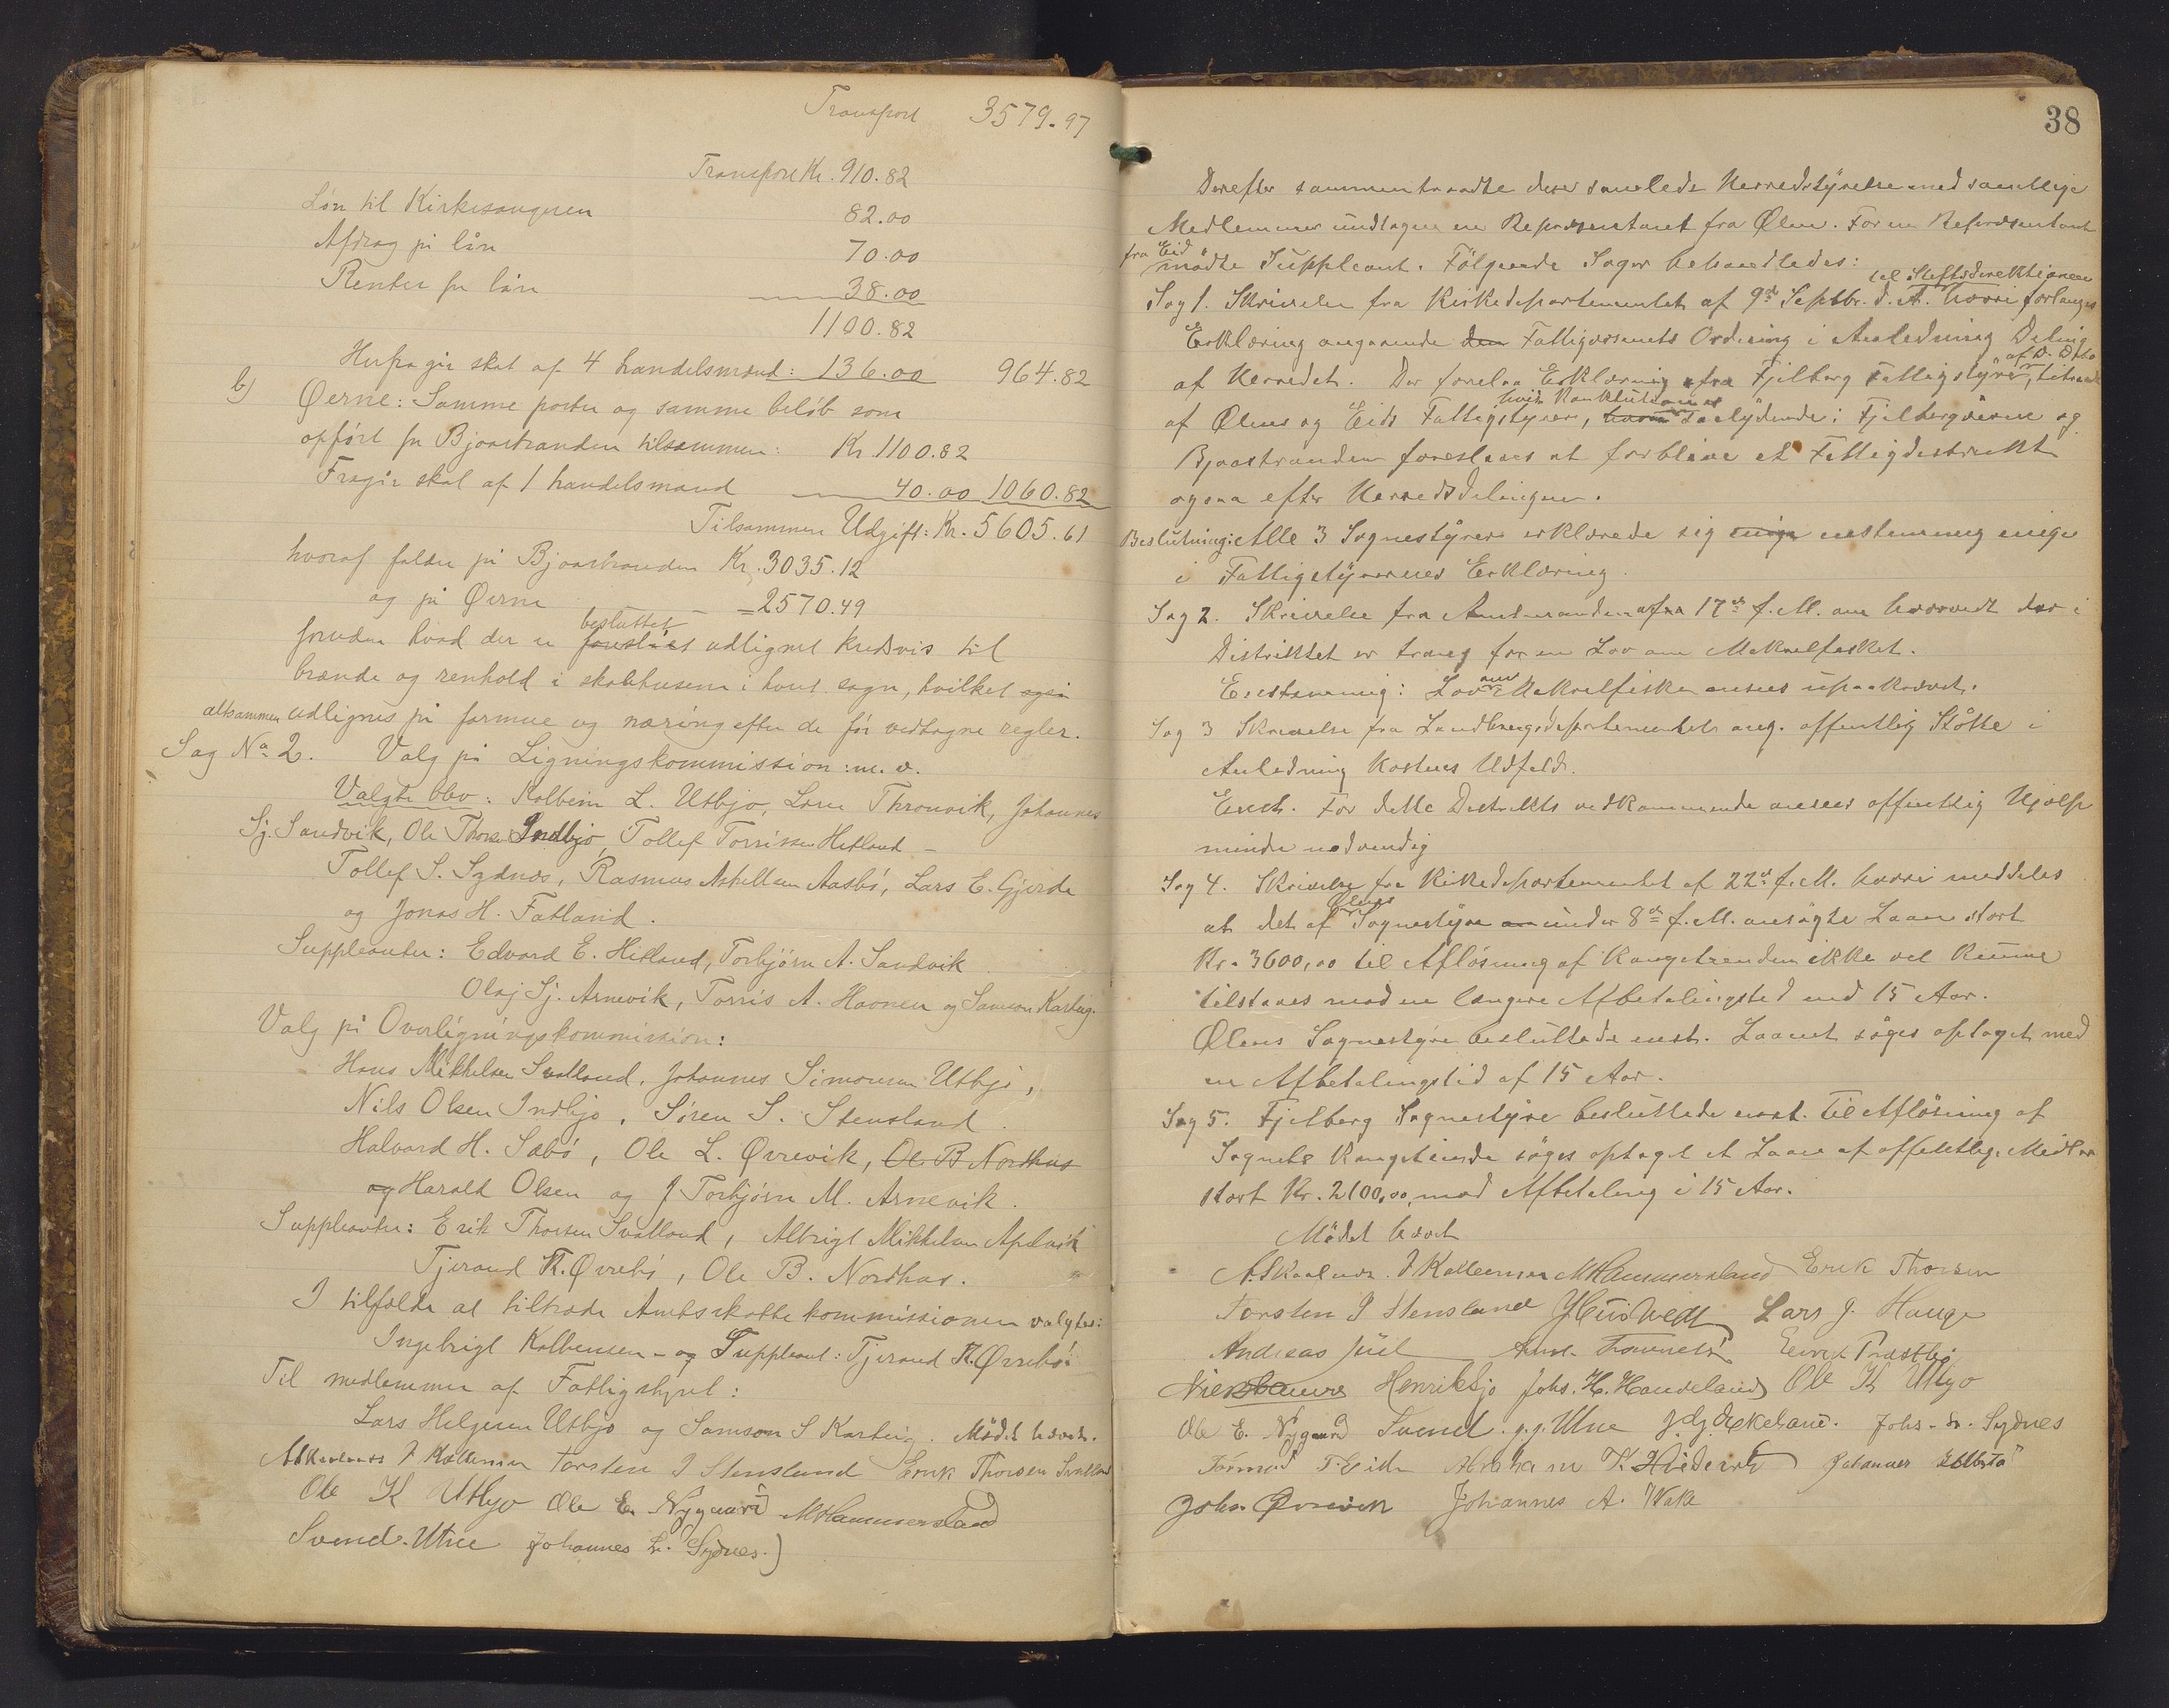 Transport 3579.97
Transport Kr. 910.82
Løn til Kirkesangeren 82.00
Afdrag på lån 70.00
Renter for lån 38.00
1100.82
Herfra går skat af 4 handelsmænd: 136.00 964.82
b) Øerne: Samme poster og samme beløb som
opført for Bjoastranden tilsammen: Kr 1100.82
Fragår skat af 1 handelsmand 40.00 1060.82
Tilsammen Udgift: Kr. 5605.61
hvoraf falder på Bjoastranden Kr. 3035.12
og på Øerne - 2570.49
besluttet
foruden hvad der er foreslået udlignet kredsvis til
brænde og renhold i skolehusene i hvert sogn, hvilket også
altsammen udlignes på formue og næring efter de før vedtagne regler.
Sag No 2. Valg på Ligningskommission m. v.
Valgte blev: Kolbein L. Utbjo, Lars Thronvik, Johannes
Sj. Sandvik, Ole Thorsen Indbjo, Tollef Torrissen Hetland -
Tollef S. Sydnæs, Rasmus Askellsen Aasbø, Lars E. Gjerde
og Jonas H. Fatland.
Suppleanter: Edvard E. Hetland, Torbjørn A. Sandvik
Olaj Sj. Arnevik, Torris A. Havnen og Samson Karteig.
Valg på Overligningskommission:
Hans Mikkelsen Svalland, Johannes Simonsen Utbjo,
Nils Olsen Indbjo, Sören S. Stensland.
Halvard H. Sæbø, Ole L. Øvrevik, Ole B Nordhus
og Harald Olsen og J Torbjørn M. Arnevik.
Suppleanter: Erik Thorsen Svalland, Albrigt Mikkelsen Apelvik
Tjerand K. Øvrebø, Ole B. Nordhus.
I tilfælde at tiltræde Amtsskattekommissionen valgtes:
Ingebrigt Kolbensen - og Suppleant: Tjerand K. Øvrebø.
Til medlemmer af Fattigstyret:
Lars Helgesen Utbjo og Samson S Karteig. Mødet hævet.
A Skaalnes I Kolbensen Torsten I Stensland Erik Thorsen Svalland
Ole K Utbjo Ole E. Nygaard M Hammersland
Svend. Utne Johannes L. Sydnes.
38
Derefter sammentraadte det samlede Herredsstyrelse med samtlige
Medlemmer undtagen en Repræsentant fra Ølen. For en Repræsentant
fra Eid
mødte Suppleant. Følgende Sager behandledes:
til Stiftsdirektionen
Sag 1. Skrivelse fra Kirkedepartementet af 9de Septbr. d. A. hvori forlanges
Erklæring angaaende den Fattigvæsenets Ordning i Anledning Deling
af D. Dato
af Herredet. Der forelaa Erklæring fra Fjelberg Fattigstyre, tiltraadt
hvis Konklusion er
af Ølens og Eids Fattigstyrer, hvoraf saalydende: Fjelbergøerne og
Bjoastranden foreslaaes at forblive et Fattigdistrikt
ogsaa efter Herredsdelingen.
Beslutning: Alle 3 Sognestyrer erklærede sig enige enstemmig enige
i Fattigstyrernes Erklæring.
Sag 2. Skrivelse fra Amtmanden af 17de f. M. om hvorvidt der i
Distriktet er trang for en Lov om Makrelfisket.
om
Enstemmig: Lov Makrelfisket ansees upaakrævet.
Sag 3 Skrivelse fra Landbrugsdepartementet ang. offentlig Støtte i
Anledning Høstens Udfald.
Enst. For dette Distrikts vedkommende ansees offentlig Hjælp
mindre nødvendig
Sag 4. Skrivelse fra Kirkedepartementet af 22de f. M. hvori meddeles
Ølens
at det af Sognestyre under 8de f. M. ansøgte Laan stort
Kr. 3600,00 til Afløsning af Kongetienden ikke vil kunne
tilstaaes mod en længere Afbetalingstid end 15 Aar.
Ølens Sognestyre besluttede enst. Laanet søges optaget med
en Afbetalingstid af 15 Aar.
Sag 5. Fjelberg Sognestyre besluttede enst. til Afløsning af
Sognets Kongetiende søges optaget et Laan af offentlige Midler
stort Kr. 2100,00 mod Afbetaling i 15 Aar.
Mødet hævet
A. Skaalnes. I Kolbensen M Hammersland Erik Thorsen
Torsten I Stensland Lars J. Hauge
Andreas Juel
Henriksbø Johs. H. Handeland Ole K Utbjo
Ole E. Nygaard Svend. Utne Johs. L. Sydnes
Tormod T. Eide Abraham Johannes
Johs. Øvrevik Johannes A. Vaka